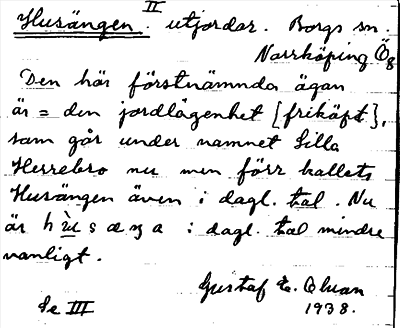 II
Husängen. utjordar. Borgs sn.
Norrköping Ög
Den här förstnämnda ägan
är = den jordlägenhet [friköpt],
som går under namnet Lilla
Herrebro nu men förr kallets
Husängen även i dagl. tal. Nu
är hùsæŋa i dagl. tal mindre
vanligt.
Gustaf E. Olsson
1938.
Se III